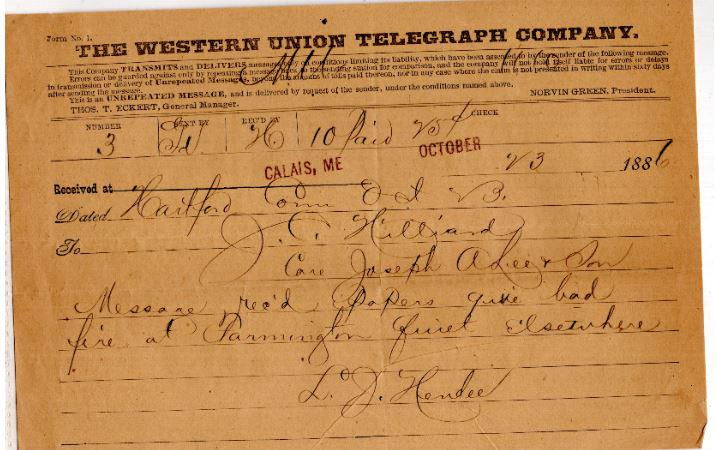 Form No. 1.
THE WESTERN UNION TELEGRAPH COMPANY.
This Company TRANSMITS and DELIVERS messages only on conditions limiting its liability, which have been assented to by the sender of the following message.
Errors can be guarded against only by repeating a message back to the sending station for comparison, and the company will not hold itself liable for errors or delays
in transmission or delivery of Unrepeated Messages, beyond the amount of tolls paid thereon, nor in any case where the claim is not presented in writing within sixty days
after sending the message.
This is an UNREPEATED MESSAGE, and is delivered by request of the sender, under the conditions named above.
THOS. T. ECKERT, General Manager. NORVIN GREEN, President.
NUMBER SENT BY REC'D BY CHECK
3 H 10 Paid 25
CALAIS, ME OCTOBER 23 1886
Received at
Dated Hartford Conn Oct 23.
To J. C. Hilliard
Care Joseph A Lee & Son
Message rec'd papers give bad
fire at Farmington quiet Elsewhere
L. J. Hendee